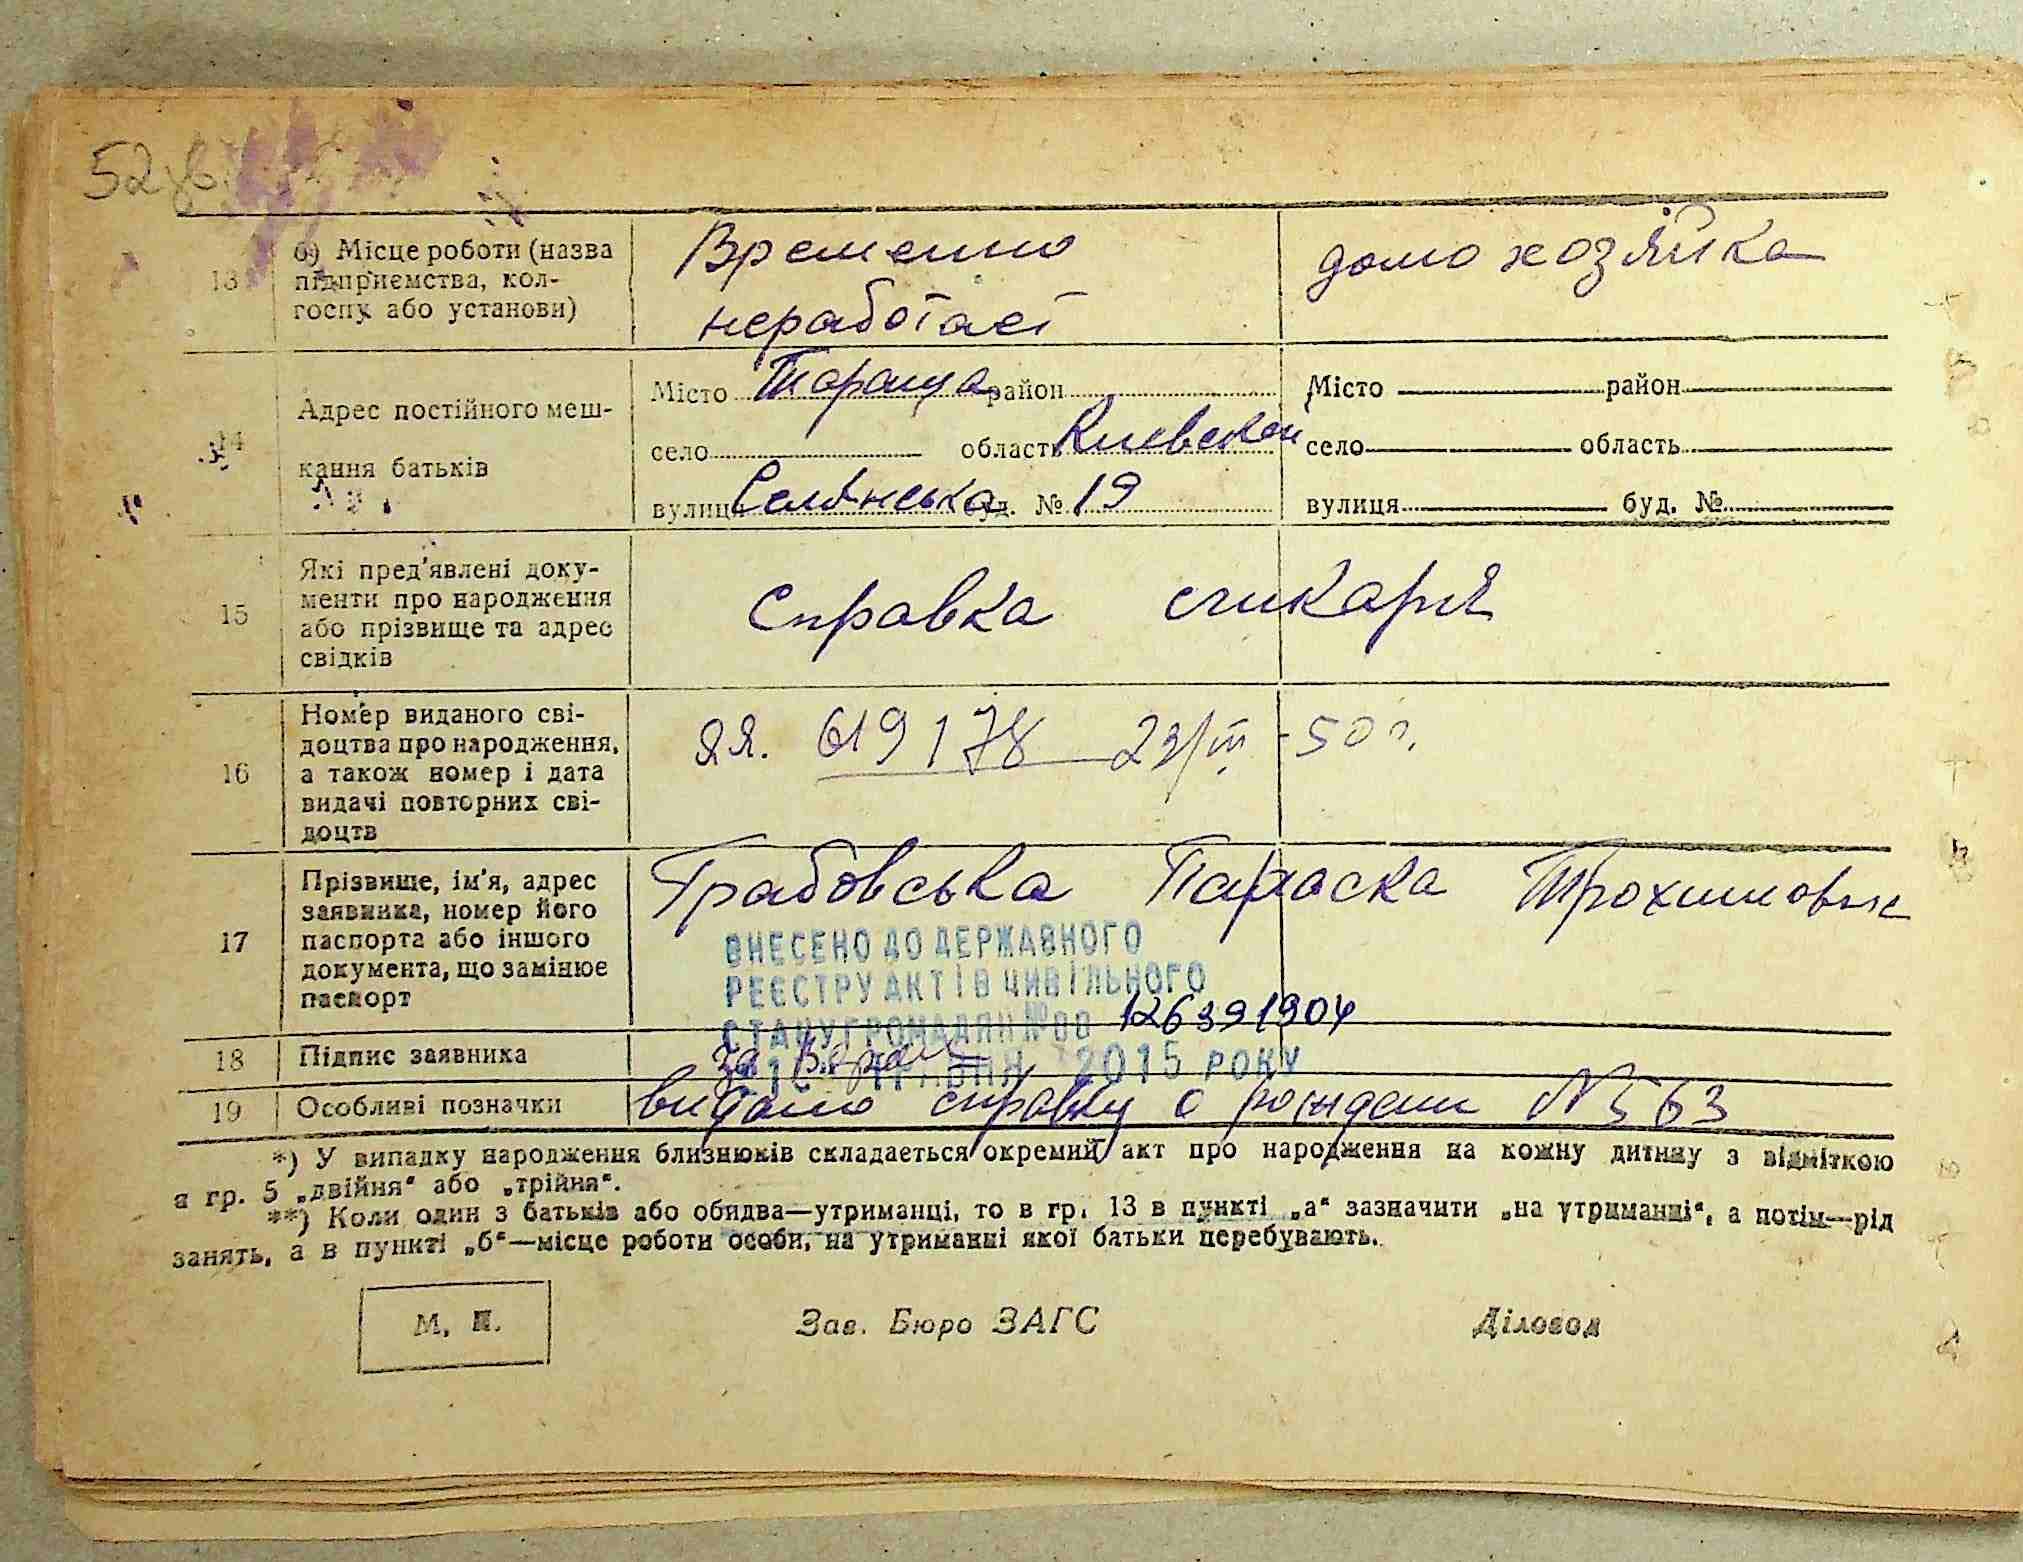 52 зв.
13 б) Місце роботи (назва підприємства, колгоспу або установи)
Временно
неработает
домохозяйка
14 Адрес постійного мешкання батьків
Місто Тараща район
село область Киевской
вулиця Селянська буд. № 19
Місто район
село область
вулиця буд. №
15 Які пред'явлені документи про народження або прізвище та адрес свідків
Справка сликарні
16 Номер виданого свідоцтва про народження, а також номер і дата видачі повторних свідоцтв
ЯЯ. 619178 23/III-50 г.
17 Прізвище, ім'я, адрес заявника, номер його паспорта або іншого документа, що замінює паспорт
Грабовська Параска Трохимовна
ВНЕСЕНО ДО ДЕРЖАВНОГО
РЕЄСТРУ АКТІВ ЦИВІЛЬНОГО
СТАНУ ГРОМАДЯН № 00 126391904
2015 РОКУ
18 Підпис заявника
19 Особливі позначки
видано справку о рождении № 563
*) У випадку народження близнюків складається окремий акт про народження на кожну дитину з відміткою
в гр. 5 „двійня“ або „трійня“.
**) Коли один з батьків або обидва—утриманці, то в гр. 13 в пункті „а“ зазначити „на утриманні“, а потім—рід
занять, а в пункті „б“—місце роботи особи, на утриманні якої батьки перебувають.
М. П.
Зав. Бюро ЗАГС
Діловод